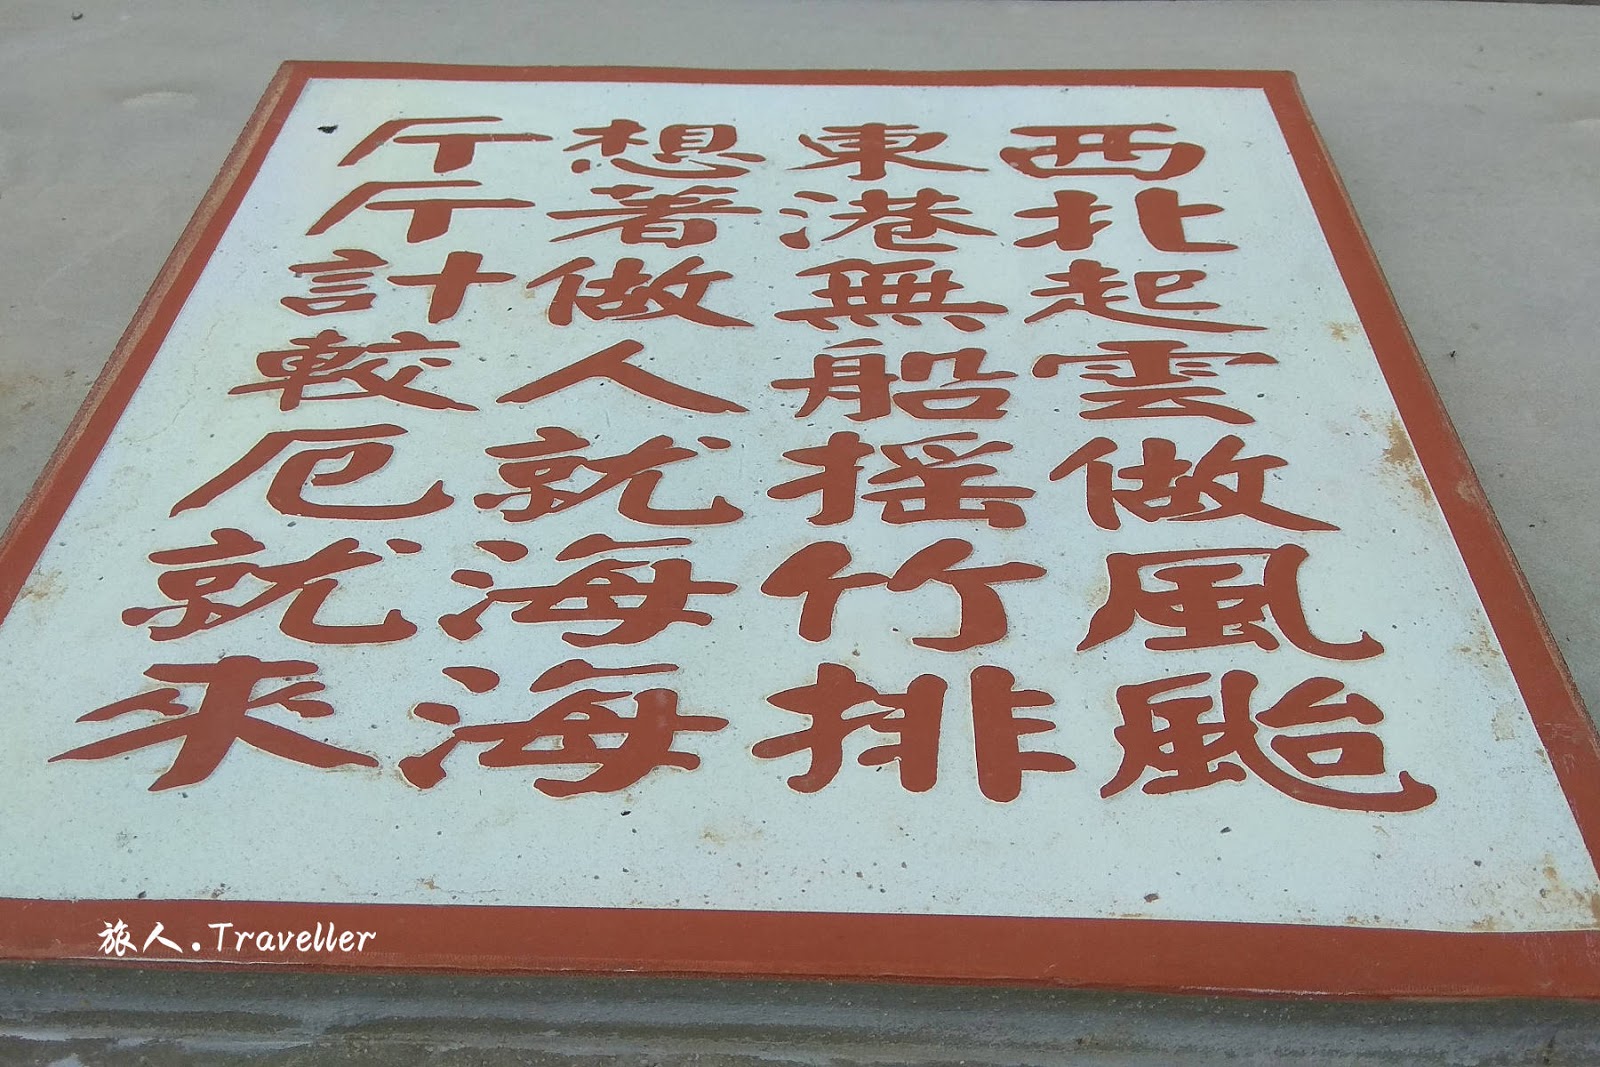 西北起雲做風颱
東港無船搖竹排
想著做人就海海
斤斤計較厄就來
旅人.Traveller